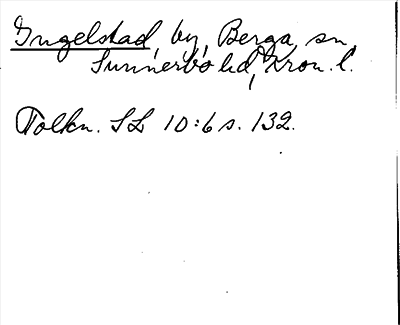 Ingelstad, by, Berga, sn
Sunnerbo hd, Kron. l.
Tolkn. SL 10:6 s. 132.